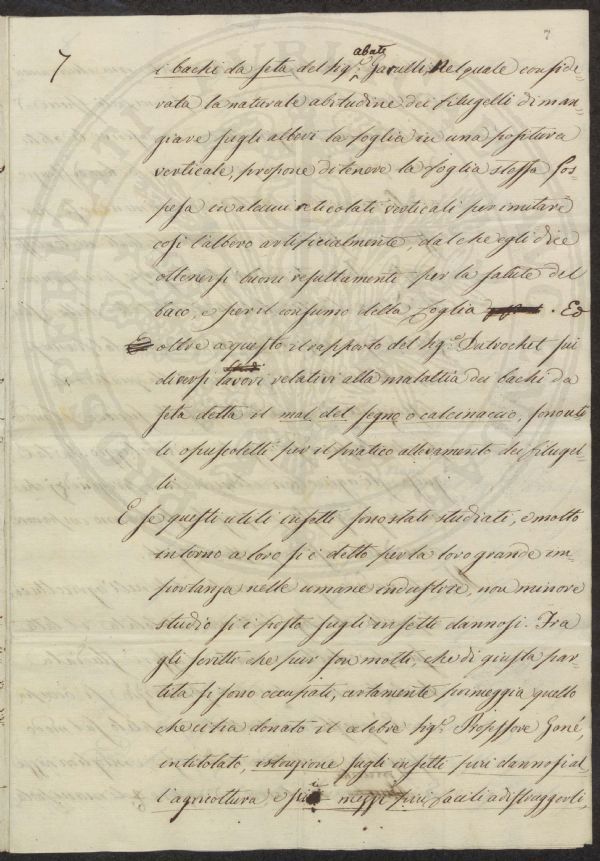 7
7
abate
i bachi da seta del Sig.r Garulli, nel quale conside-
rata la naturale abitudine dei filugelli di man-
giare sugli alberi la foglia in una positura
verticale, propone di tenere la foglia stessa sos-
pesa in alcuni reticolati verticali per imitare
così l'albero artificialmente, dal che egli dice
ottenersi buoni resultamenti per la salute del
baco, e per il consumo della foglia. Ed
oltre a questo il rapporto del Sig.r Dutrochet sui
studi
diversi lavori relativi alla malattia dei bachi da
seta detta il mal del segno o calcinaccio, sono uti-
li opuscoletti per il pratico allevamento dei filugel-
li.
E se questi utili insetti sono stati studiati, e molto
intorno a loro si è detto per la loro grande im-
portanza nelle umane industrie, non minore
studio si è posto sugli insetti dannosi. Fra
gli scritti che pur son molti, che di giusta par-
tita si sono occupati, certamente primeggia quello
che ci ha donato il celebre Sig.r Professore Gené,
intitolato, istruzione sugli insetti più dannosi al-
l'agricoltura e su i mezzi più facili a distruggerli,